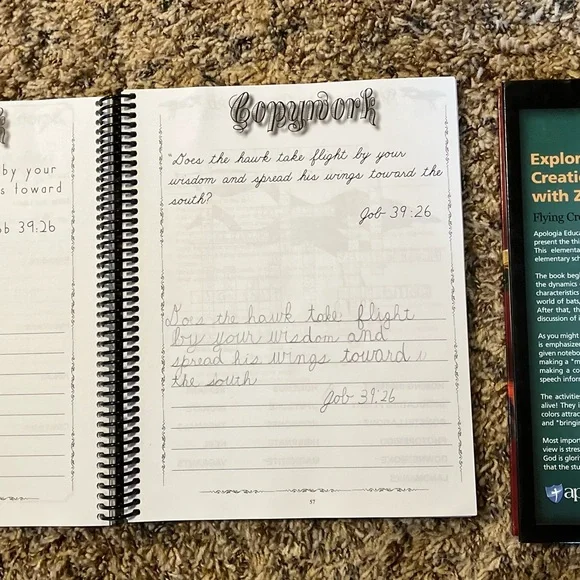 by your
s toward
ob 39:26
Copywork
"Does the hawk take flight by your
wisdom and spread his wings toward the
south?
Job 39:26
Does the hawk take flight
by your wisdom and
spread his wings toward
the south
Job 39:26
57
Explor
Creatio
with Z
Flying Cre
Apologia Educa
present the thi
This elementa
elementary sch
The book begi
the dynamics
characteristics
world of bats,
After that, th
discussion of i
As you might
is emphasized
given notebo
making a "m
making a co
speech infor
The activities
alive! They i
colors attrac
and "bringin
Most impor
view is stres
God is glori
that the stu
ap